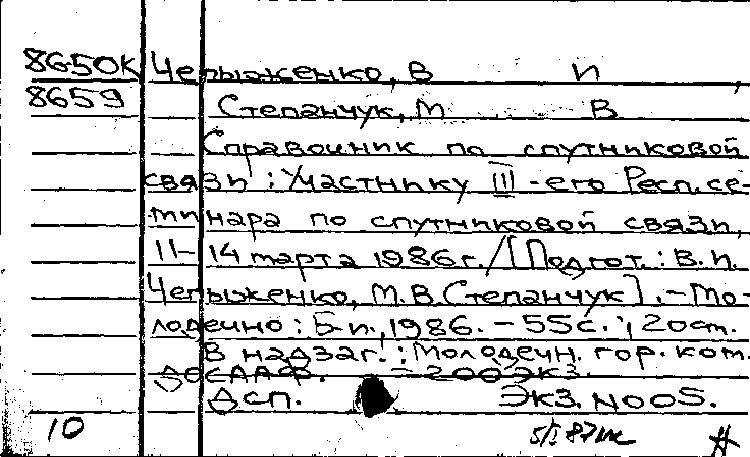 8650К Чепыженко, В И ,
8659 Степанчук, М В
Справочник по спутниковой
связи : Участнику III-его Респ. се-
минара по спутниковой связи,
11-14 марта 1986 г. / [Подгот.: В. И.
Чепыженко, М. В. Степанчук]. - Мо-
лодечно : Б. и., 1986. - 55 с. ; 20 см.
В надзаг. : Молодечн. гор. ком.
ДОСААФ. - 200 экз.
Дсп. Экз. N005.
10